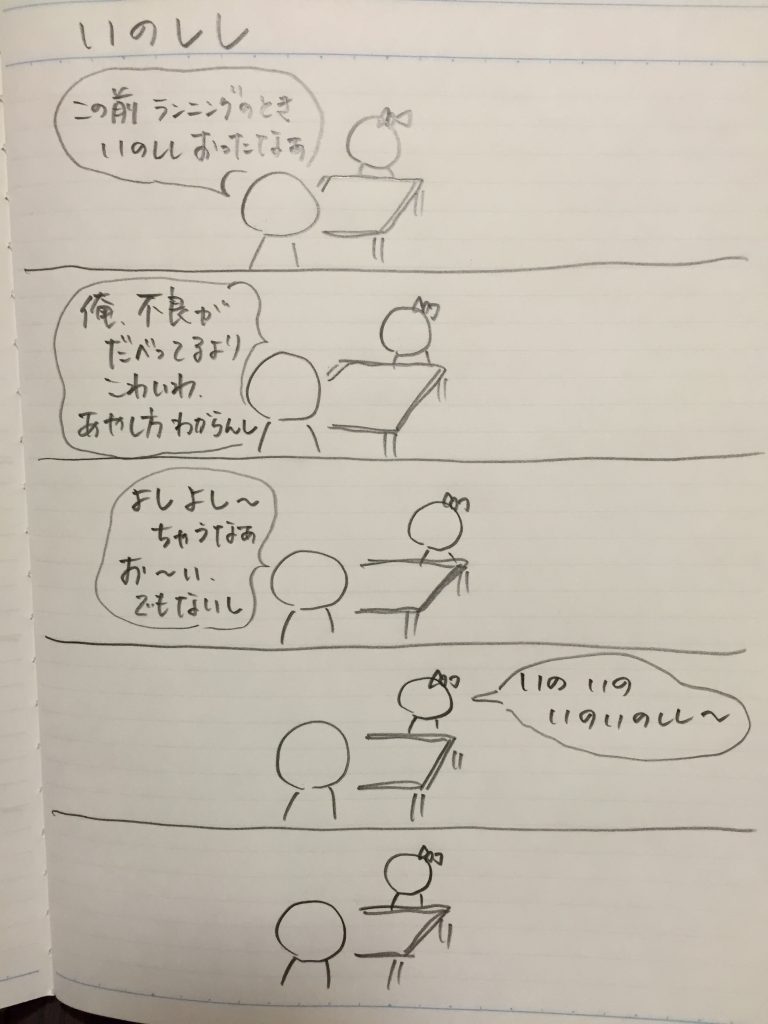 いのしし
この前 ランニングのとき
いのしし おったなぁ
俺、不良が
だべってるより
こわいわ、
あやし方 わからんし
よし よし〜
ちゃうなぁ
お〜い、
でもないし
いの いの
いのいのしし〜